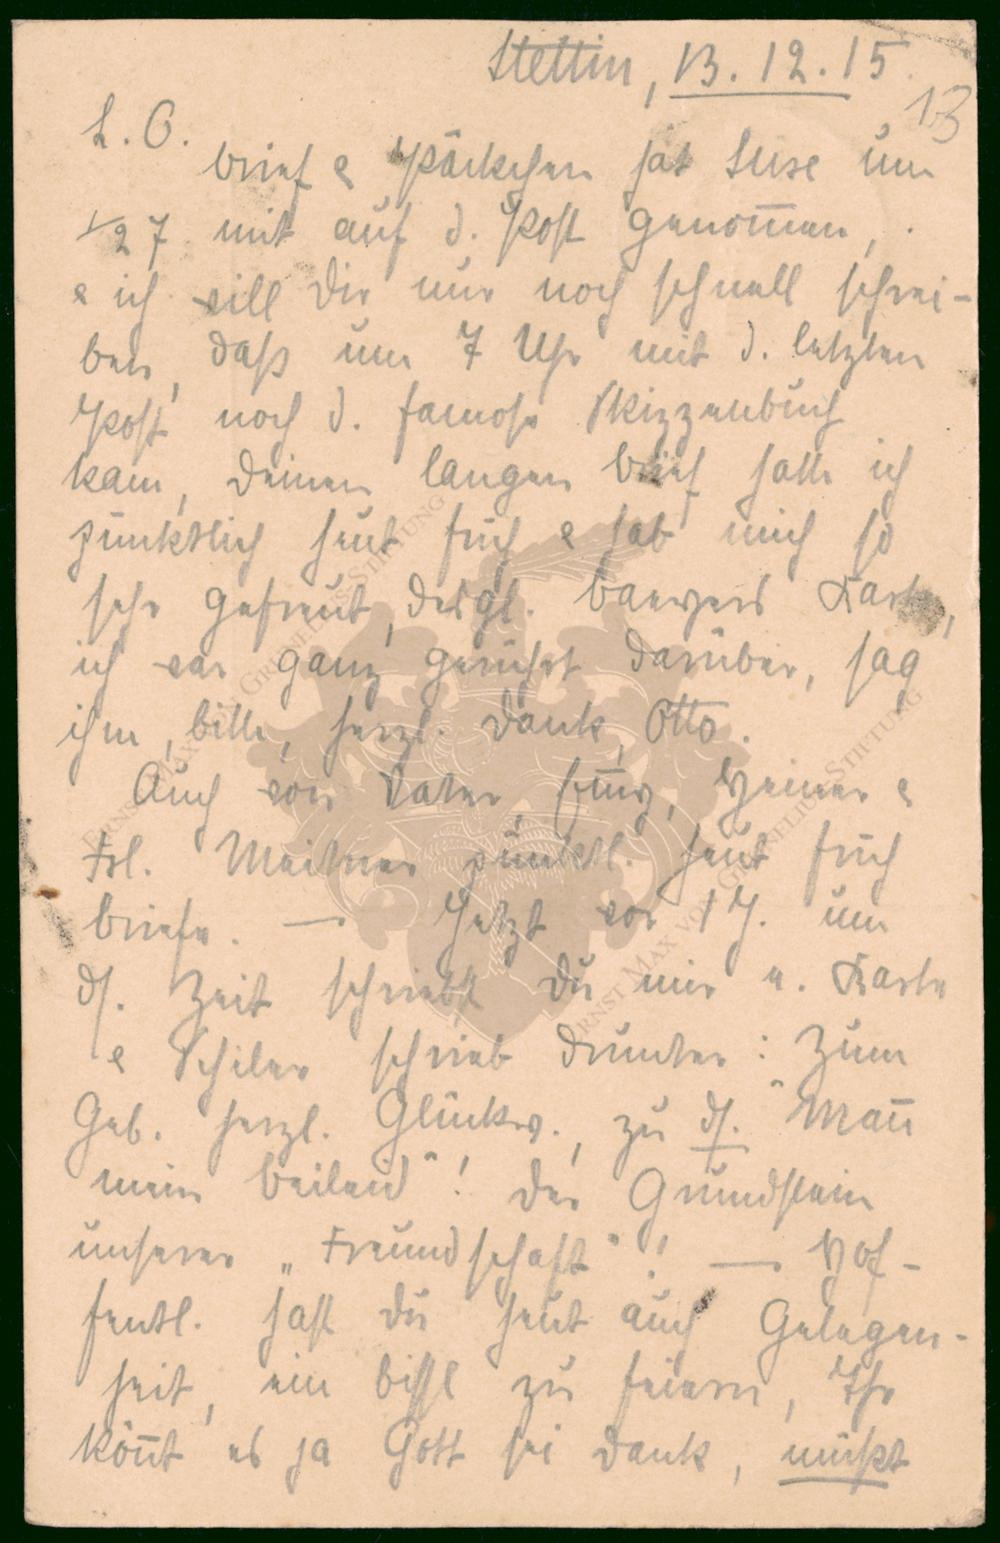 Stettin, 13. 12. 15.
13
L. O.
Brief & Päckchen hat Suse um
1/2 7 mit auf d. Post genom̅en,
& ich will Dir nur noch schnell schrei-
ben, daß um 7 Uhr mit d. letzten
Post noch d. famose Skizzenbuch
kam, Deinen langen Brief hatte ich
pünktlich heut früh & hab mich so
sehr gefreut, desgl. Baeyers Karte,
ich war ganz gerührt darüber, sag
ihm, bitte, herzl. Dank, Otto.
Auch von Vater, Heiner &
Frl. Meitner pünktl. heut früh
Briefe. — Jetzt vor 1 J. um
ds. Zeit schriebst Du mir e. Karte
& Schiler schrieb drunter: "Zum
Geb. herzl. Glückw., zu ds. Man̅
mein Beileid"! Der Grundstein
unserer „Freundschaft"! — Hof-
fentl. hast Du heut auch Gelegen-
heit, ein bissl zu feiern, Ihr
kön̅t es ja Gott sei Dank, müßt
ERNST MAX VON GRENELIUS-STIFTUNG
ERNST MAX VON GRENELIUS-STIFTUNG